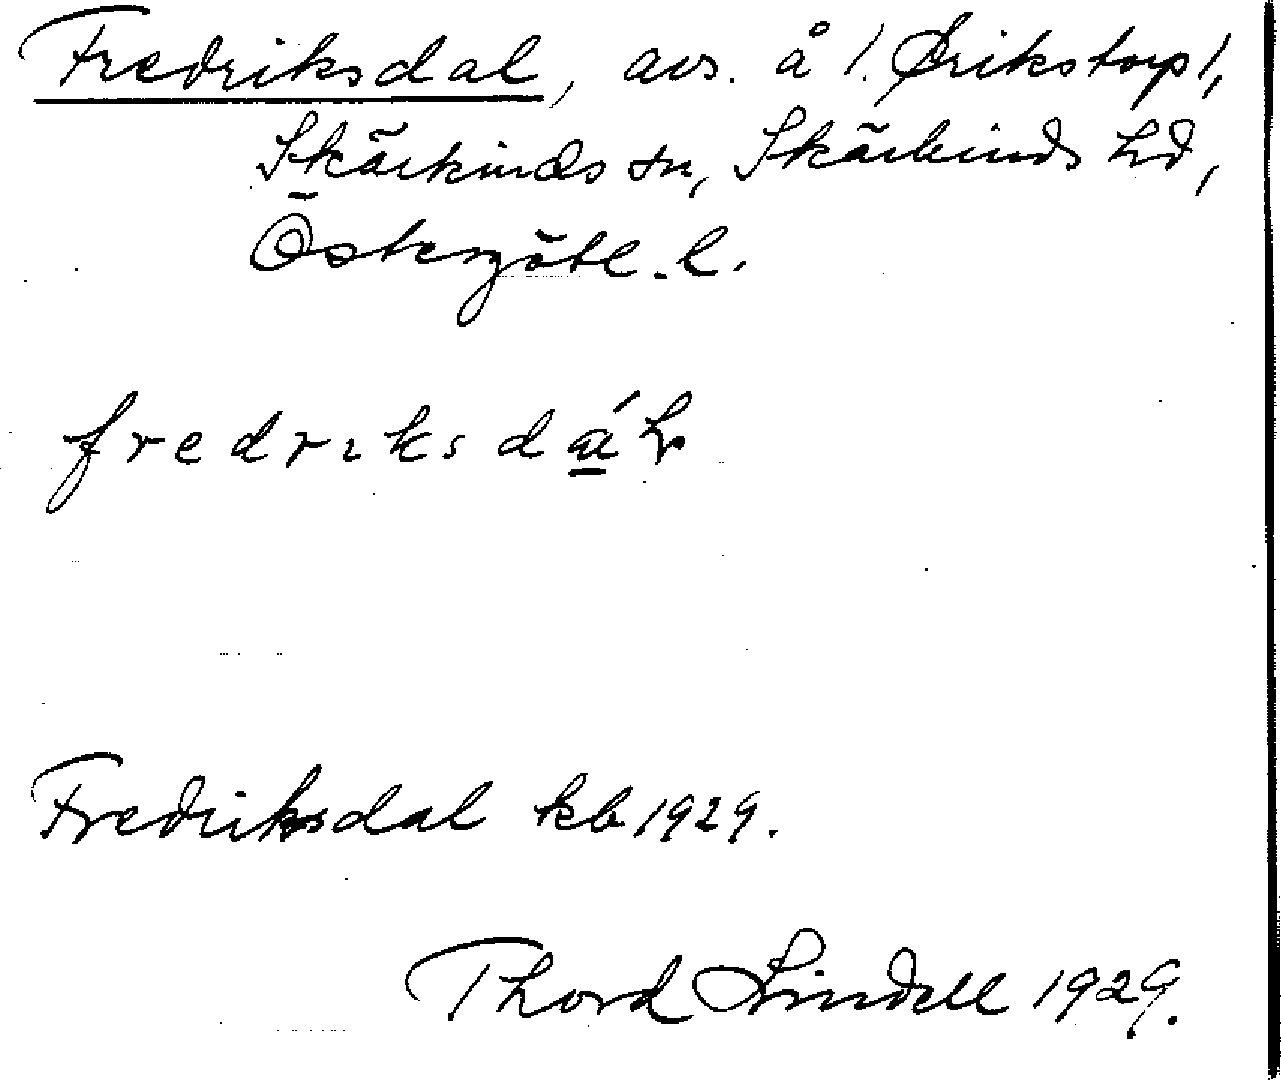 Fredriksdal, avs. å /. Erikstorp/,
Skärkinds sn, Skärkinds hd,
Östergötl. l.
Fredriksdal kb 1929.
Thord Lindell 1929.